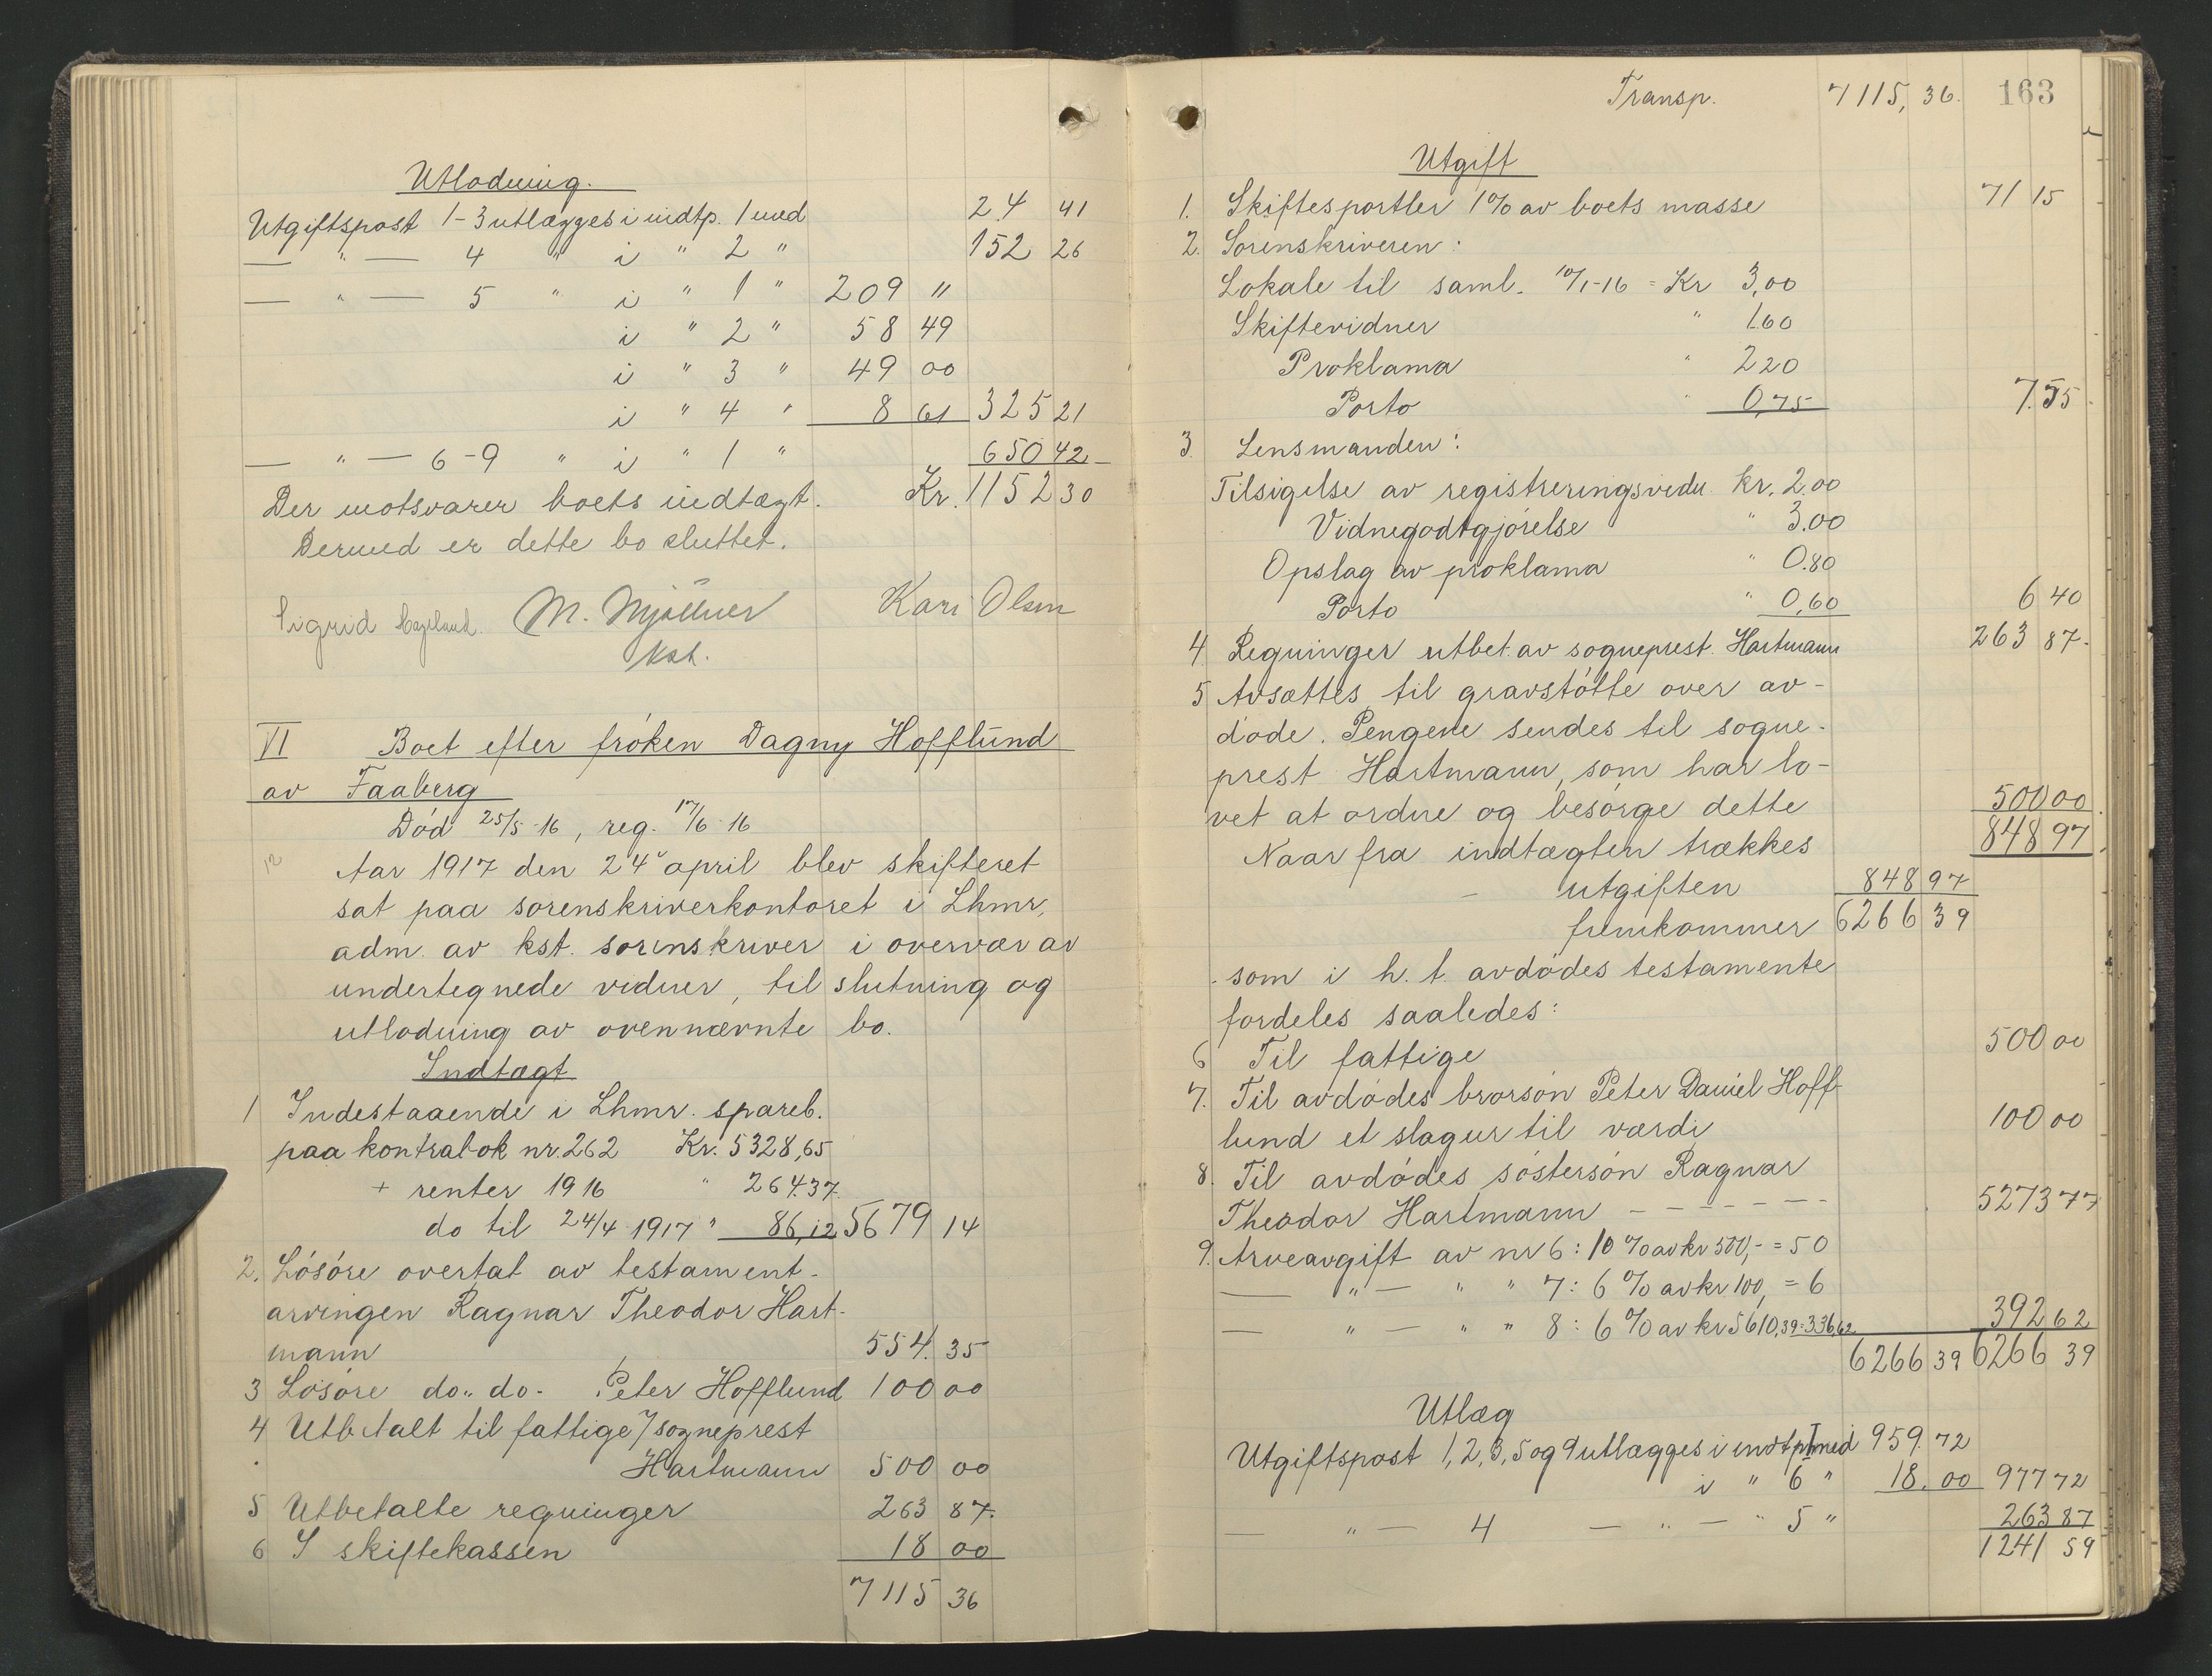 Utlodning.
Utgiftspost 1-3 utlægges i indtp. 1 med 24 41
— " — 4 " i " 2 " 152 26
— " — 5 " i " 1 " 209 "
i " 2 " 58 49
i " 3 " 49 00
i " 4 " 8 61 325 21
— " — 6-9 " i " 1 " 650 42
Der motsvarer boets indtægt. Kr. 1152 30
Dermed er dette bo sluttet.
Sigrid M. Mjöllner Kari Olsen
kst.
VI Boet efter fröken Dagny Hofflund
av Faaberg
Död 25/5-16, reg. 17/6 16
Aar 1917 den 24' april blev skifteret
sat paa sorenskriverkontoret i Lhmr,
adm. av kst. sorenskriver i overvær av
undertegnede vidner, til slutning og
utlodning av ovennævnte bo.
Indtægt
1 Indestaaende i Lhmr. spareb.
paa kontrabok nr. 262 Kr. 5328,65
+ renter 1916 " 264.37.
do til 24/4 1917 " 86,12 5679 14
2. Lösöre overtat av testament-
arvingen Ragnar Theodor Hart-
mann 554. 35
3 Lösöre do. do. Peter Hofflund 100 00
4 Utbetalt til fattige v/sogneprest
Hartmann 500 00
5 Utbetalte regninger 263 87.
6 I skiftekassen 18 00
7115 36
Transp. 7115, 36. 163
Utgift
1. Skiftesportler 1% av boets masse 71 15
2. Sorenskriveren:
Lokale til saml. 10/1-16 = Kr 3,00
Skiftevidner " 1.60
Proklama " 220
Porto " 0,75 7.55
3. Lensmanden:
Tilsigelse av registreringsvidn kr. 2.00
Vidnegodtgjörelse " 3.00
Opslag av proklama " 0.80
Porto " 0,60 6 40
4 Regninger utbet. av sogneprest. Hartmann 263 87.
5 Avsættes til gravstötte over av-
döde. Pengene sendes til sogne-
prest Hartmann, som har lo-
vet at ordne og besörge dette 500 00
Naar fra indtægten trækkes 848 97
utgiften 848 97
fremkommer 6266 39
som i h. t. avdödes testamente
fordeles saaledes:
6 Til fattige 500 00
7. Til avdödes brorsön Peter Daniel Hoff-
lund et slagur til værdi 100 00
8. Til avdödes söstersön Ragnar
Theodor Hartmann - - - - - - 5273 77
9. Arveavgift av nr 6: 10% av kr 500,- = 50
— " — " " 7: 6% av kr 100, = 6
— " — " " 8: 6% av kr 5610,39 = 336,62 392 62
6266 39 6266 39
Utlæg
Utgiftspost 1, 2, 3, 5 og 9 utlægges i indtp 1 med 959. 72
i " 6 " 18. 00 977 72
— " — 4 — " — " 5 " 263 87
1241 59